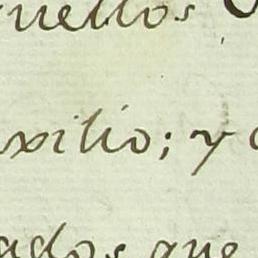 uellos
xilio; y
ados que